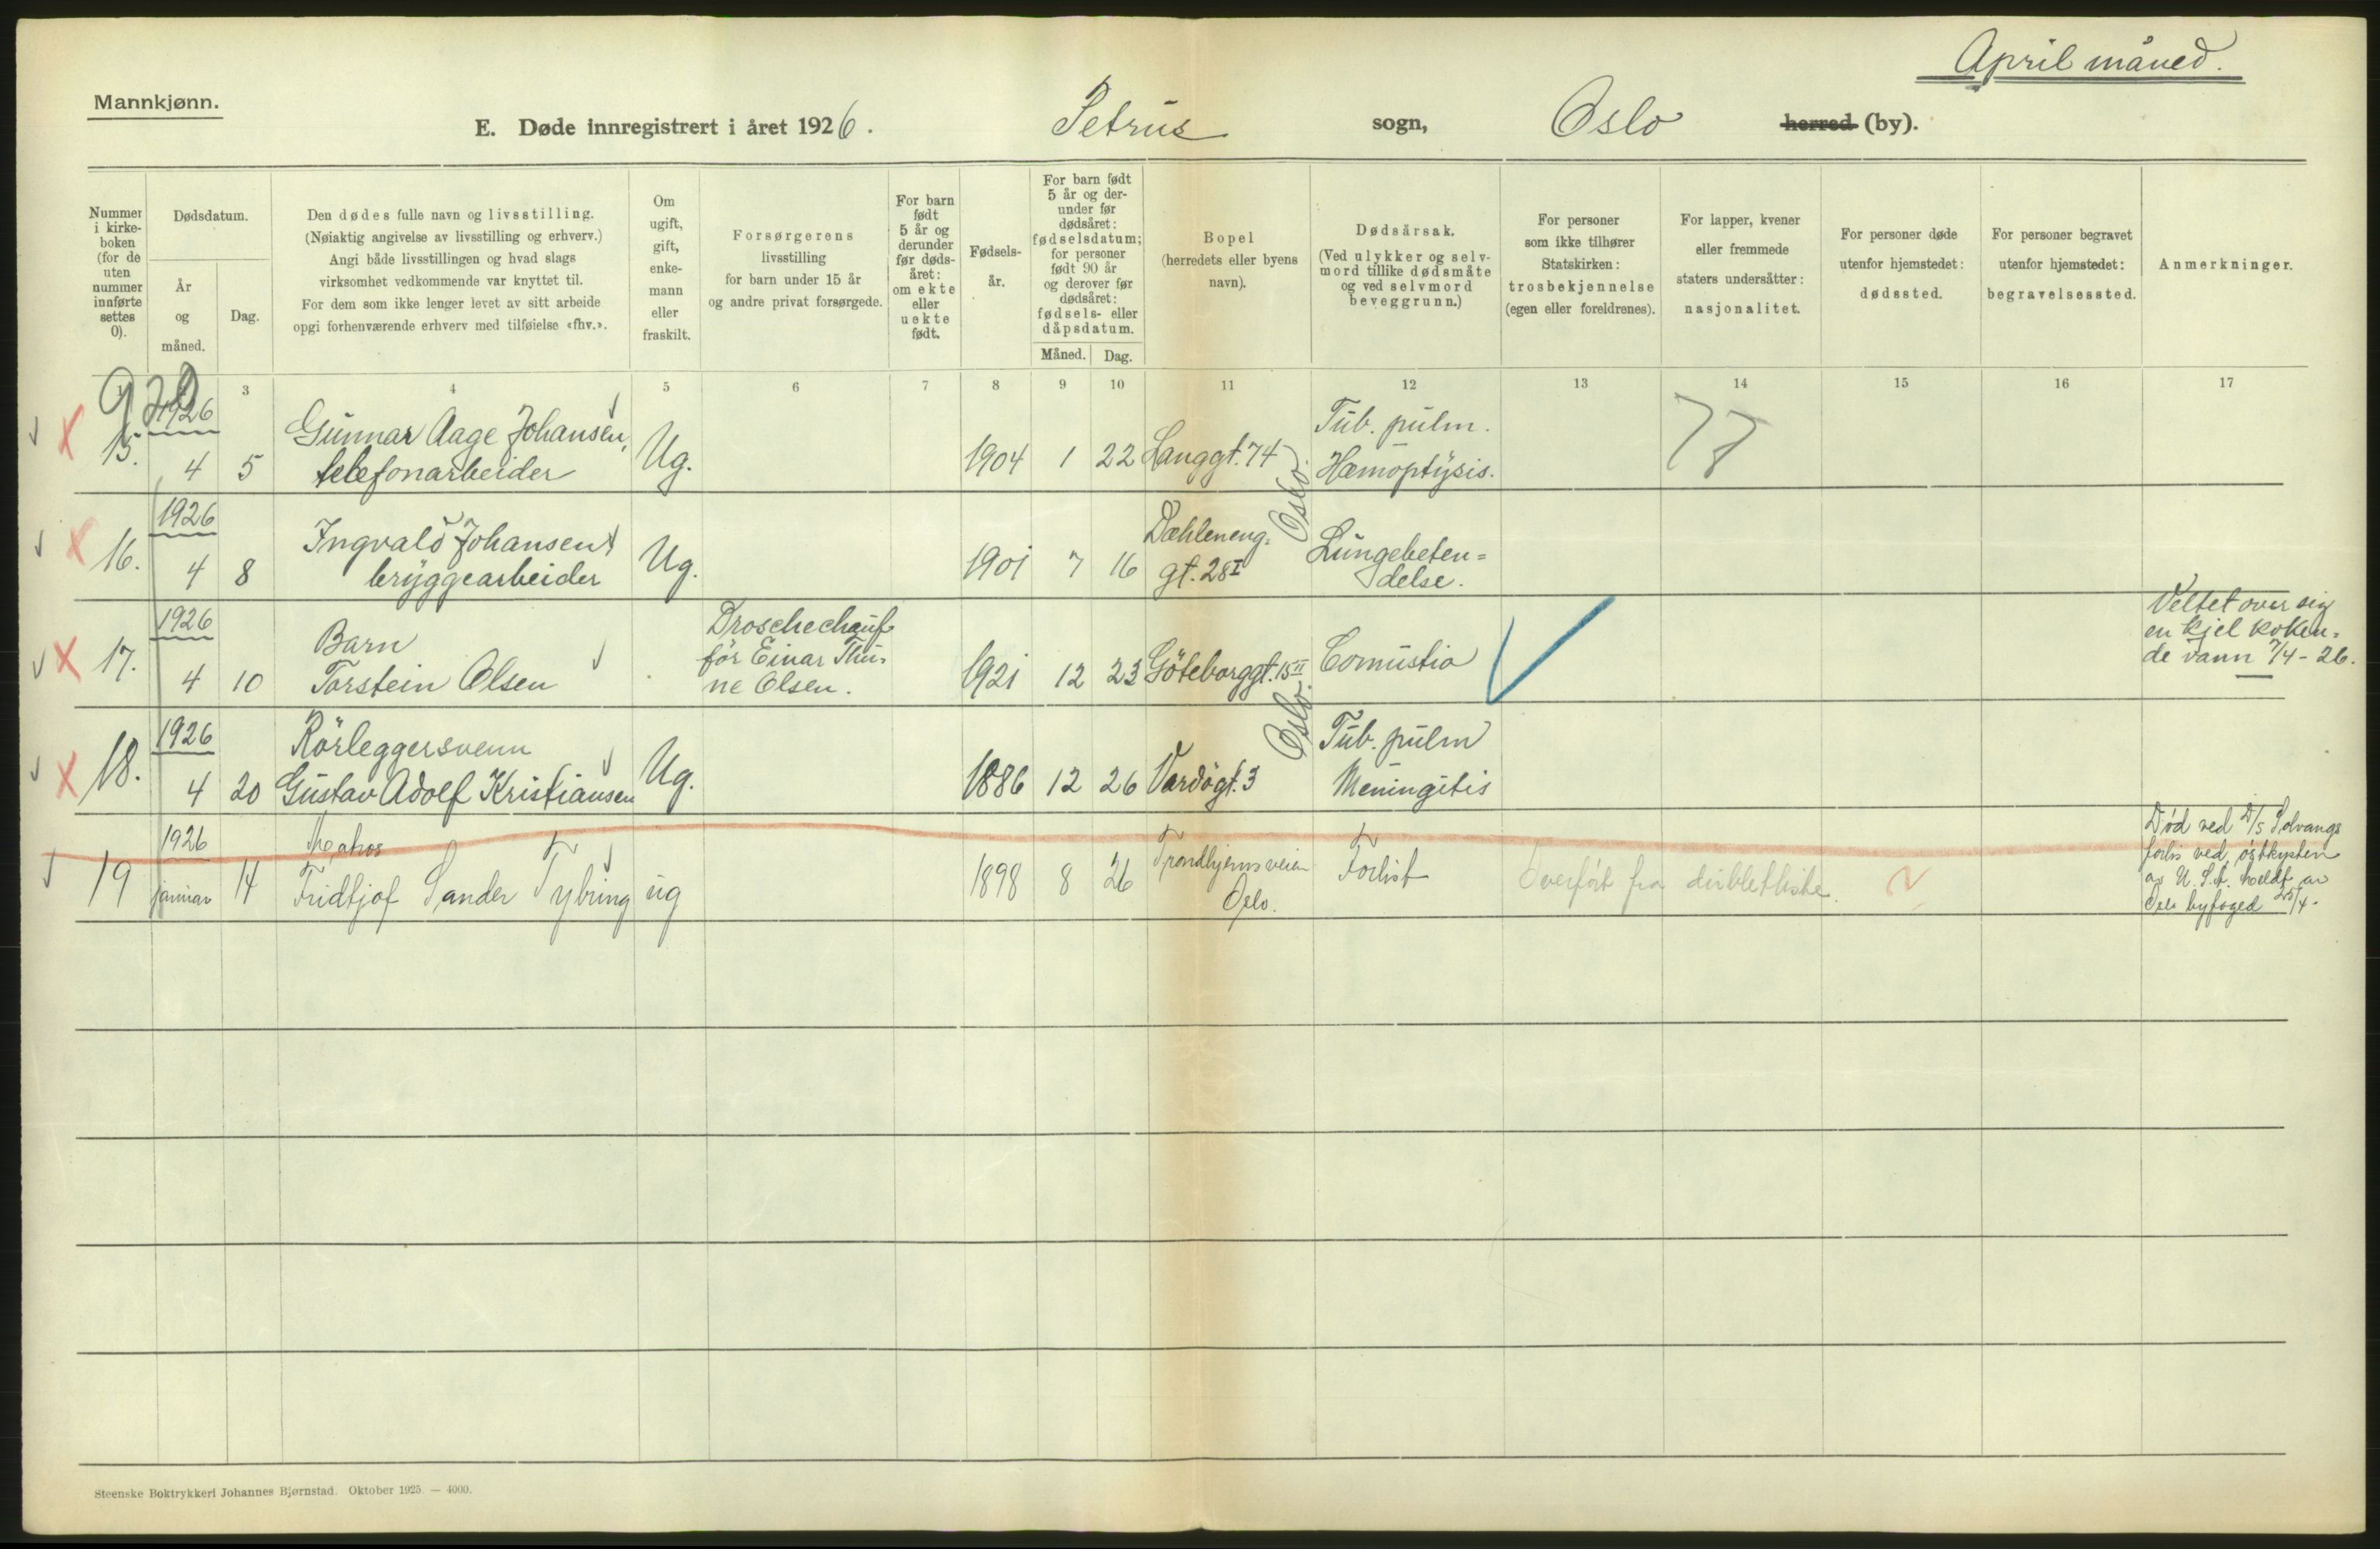 April måned.
Mannkjønn.
E. Døde innregistrert i året 1926. Petrus sogn, Oslo herred (by).
Nummer
i kirke-
boken
(for de
uten
nummer
innførte
settes
0).
Dødsdatum.
År
og
måned.
Dag.
Den dødes fulle navn og livsstilling.
(Nøiaktig angivelse av livsstilling og erhverv.)
Angi både livsstillingen og hvad slags
virksomhet vedkommende var knyttet til.
For dem som ikke lenger levet av sitt arbeide
opgi forhenværende erhverv med tilføielse «fhv.».
Om
ugift,
gift,
enke-
mann
eller
fraskilt.
Forsørgerens
livsstilling
for barn under 15 år
og andre privat forsørgede.
For barn
født
5 år og
derunder
før døds-
året:
om ekte
eller
uekte
født.
Fødsels-
år.
For barn født
5 år og der-
under før
dødsåret:
fødselsdatum;
for personer
født 90 år
og derover før
dødsåret:
fødsels- eller
dåpsdatum.
Måned. Dag.
Bopel
(herredets eller byens
navn).
Dødsårsak.
(Ved ulykker og selv-
mord tillike dødsmåte
og ved selvmord
beveggrunn.)
For personer
som ikke tilhører
Statskirken:
trosbekjennelse
(egen eller foreldrenes).
For lapper, kvener
eller fremmede
staters undersåtter:
nasjonalitet.
For personer døde
utenfor hjemstedet:
dødssted.
For personer begravet
utenfor hjemstedet:
begravelsessted.
Anmerkninger.
3 4 5 6 7 8 9 10 11 12 13 14 15 16 17
15.
1926
4 5
Gunnar Aage Johansen,
telefonarbeider
Ug.
1904 1 22
Langgt. 74
Oslo.
Tub. pulm.
Hæmoptysis.
16.
1926
4 8
Ingvald Johansen
bryggearbeider
Ug.
1901 7 16
Dæhleneng-
gt. 28 I
Lungebeten=
delse.
17.
1926
4 10
Barn
Torstein Olsen
Droschechauf
før Einar Thu-
ne Olsen.
1921 12 23
Göteborggt. 15 II
Oslo.
Comustio
Veltet over sig
en kjel koken=
de vann 7/4-26.
18.
1926
4 20
Rörleggersvenn
Gustav Adolf Kristiansen
Ug.
1886 12 26
Vardögt. 3
Tub. pulm
Meningitis
19
1926
januar 14
Matros
Fridtjof Sander Tybring
ug
1898 8 26
Trondhjemsveien
Oslo.
Forlist
Overført fra dublettliste.
Død ved D/S Solvangs
forlis ved østkysten
av U.S.A. meldt av
Oslo byfoged 25/4.
Steenske Boktrykkeri Johannes Bjørnstad. Oktober 1925. — 4000.